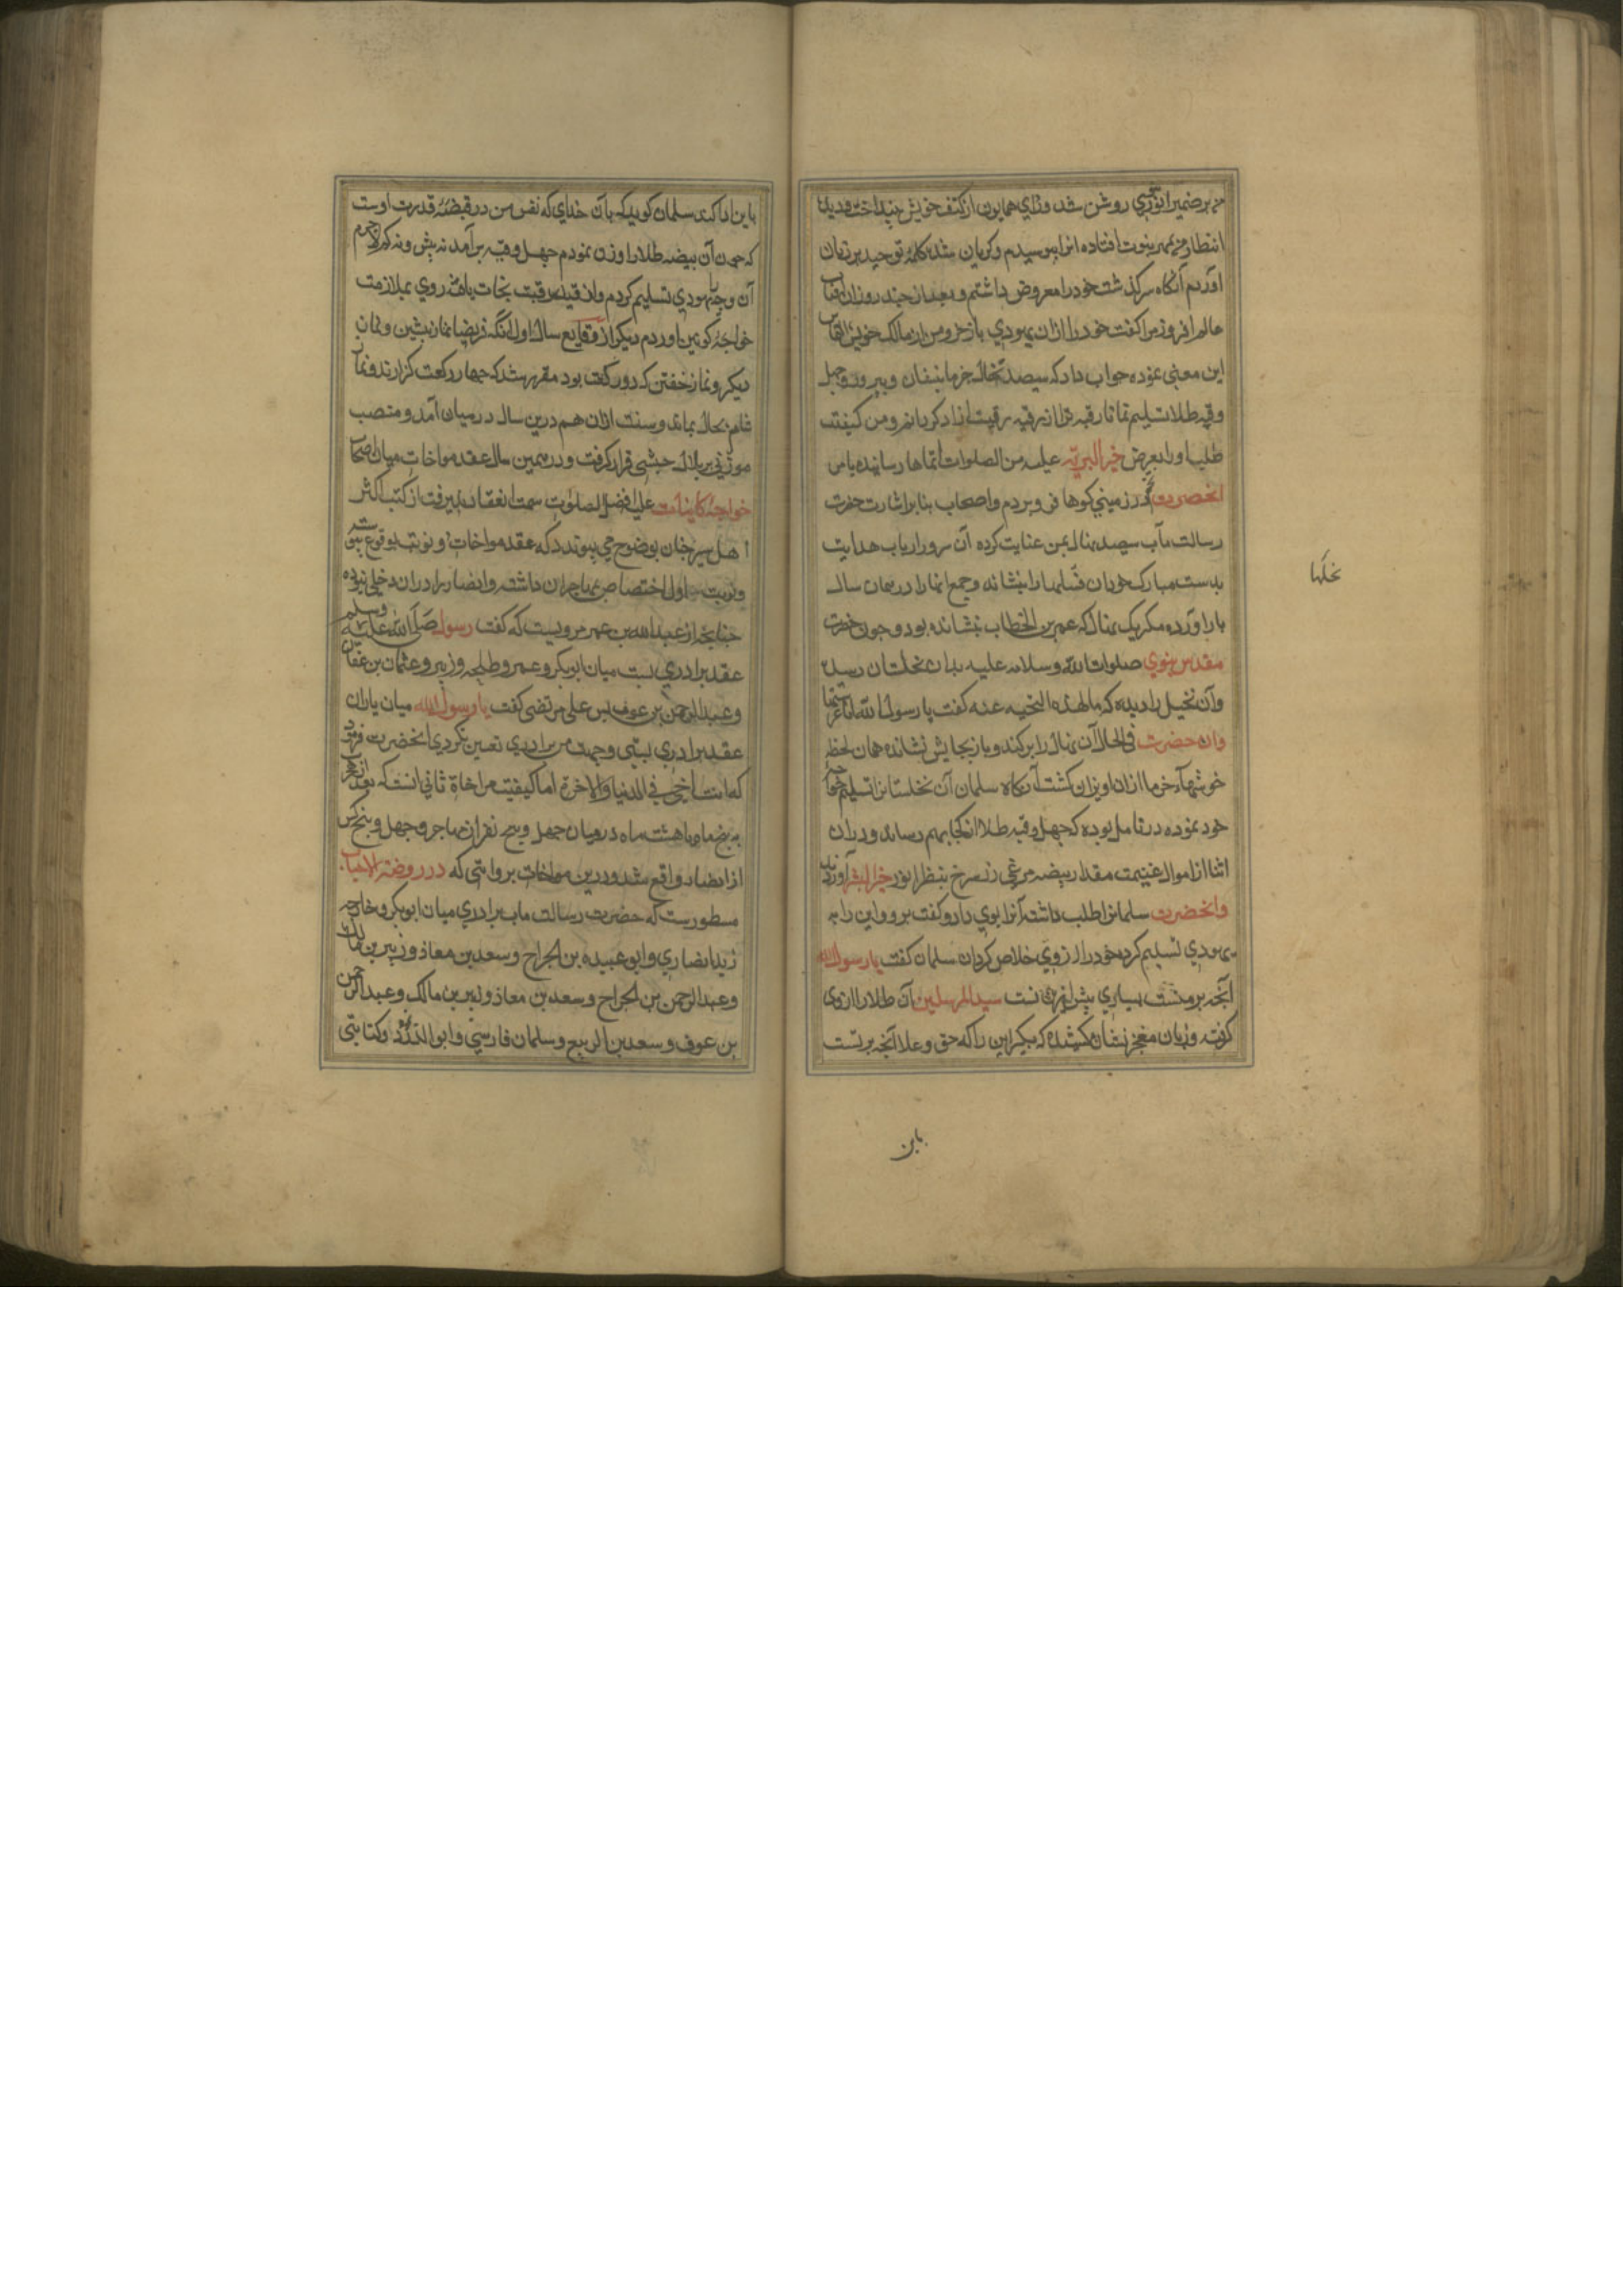 بر ضمیر انور وی روشن شد ورای همایون از کتف خویش بینداخت و دیدهٔ
انتظار من بمهر نبوت افتاده انرا بوسیدم و کریان شده کلمهٔ توحید بر زبان
آوردم آنکاه سرکذشت خود را معروض داشتم و بعد از چند روز ان افتاب
عالم افروز مرا کفت خود را از ان یهودی بازخر و من از مالک خویش التماس
این معنی نموده جواب داد که سیصد نخاله خرما بنشان و بپرور و چهل
وقیه طلا تسلیم نما تا رقبه ترا از ربقه رقیت ازاد کردانم و من کیفیت
طلب او را بعرض خیر البریّه علیه من الصلوات اتمها رسانیده باس
انحضرت در زمینی کوها فرو بردم و اصحاب بنابر اشارت حضرت
رسالت مآب سیصد نهال بمن عنایت کرده آن سرور ارباب هدایت
بدست مبارک خود ان فسیلها را بنشانده و جمع انها را در همان سال
بار آورده مکر یک نهال که عمر بن الخطاب نشانده بود و چون حضرت
مقدس نبوی صلوات الله و سلامه علیه بدان نخلستان رسید
وآن نخیل را دیده که ما لهذه النخیه عنه کفت یا رسول الله انا غرستها
وان حضرت فی الحال آن نهال را برکند و باز بجایش نشانده همان لحظه
خوشهاء خرما از ان اویزان کشت آن کاه سلمان آن نخلستانرا تسلیم خواجهٔ
خود نموده در تامل بوده که چهل وقیه طلا از کجا بهم رساند و در ان
اثنا از اموال غنیمت مقدار بیضه مرغی زر سرخ بنظر انور خیر البشر آوردند
وانحضرت سلمانرا طلب داشته آنرا بوی داد و کفت برو و این را به
یهودی تسلیم کرده خود را از وی خلاص کردان سلمان کفت یا رسول الله
آنچه بر منست بسیاری بیش از انست سید المرسلین آن طلا را از وی
کرفت و زبان معجز نشان کشیده که بکیر این را که حق و علا آنچه بر تست
نخلها
باین
باین ادا کند سلمان کوید که بان خدای که نفس من در قبضهٔ قدرت اوست
که چون آن بیضه طلا را وزن نمودم چهل وقیه برآمد نه بیش و نه کم لاجرم
آن وجه بیهودی تسلیم کردم و از قید رقبت نجات یافته روی بملازمت
خواجهٔ کونین اوردم دیکر از وقایع سال اول انکه فریضا نماز پشین و نماز
دیکر و نماز خفتن که دو رکعت بود مقرر شد که چهار رکعت کزارند و نماز
شام بحال بماند و سنت اذان هم درین سال در میان آمد و منصب
موذنی بر بلال حبشی قرار کرفت و در همین سال عقد مواخات میان اصحاب
خواجهٔ کاینات علیه افضل الصلوت سمت انعقاد پذیرفت از کتب اکثر
اهل سیر چنان بوضوح می پیوندد که عقد مواخات دو نوبت بوقوع پیوسته
و نوبت اول اختصاص بمهاجران داشته و انصار را در ان دخلی نبوده
چنانچه از عبدالله بن عمر مرویست که کفت رسول صلی الله علیه وسلم
عقد برادری بست میان ابوبکر و عمر و طلحه و زبیر و عثمان بن عفان
و عبد الرحمن بن عوف پس علی مرتضی کفت یا رسول الله میان یاران
عقد برادری بستی و جهت من برادری تعیین نکردی انحضرت فرمود
که انت اخی فی الدنیا والاخرة اما کیفیت مواخاة ثانی انست که بعد از هجرت
به پنج ماه یا هشت ماه در میان چهل و پنج نفر از مهاجر و چهل و پنج کس
از انصار واقع شد و درین مواخات بروایتی که در روضة الاحباب
مسطورست که حضرت رسالت ماب برادری میان ابوبکر و خارجه
زید انصاری و ابو عبیده بن الجراح و سعد بن معاذ و زبیر بن مالک
و عبد الرحمن بن الجراح و سعد بن معاذ و زبیر بن مالک و عبد الرحمن
بن عوف و سعد بن الربیع و سلمان فارسی و ابو الدردا و کتابتی